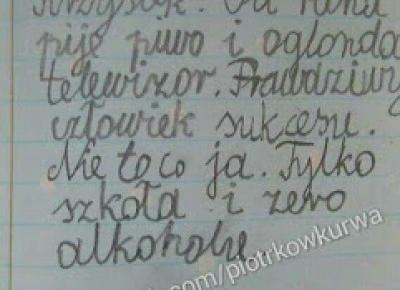 Krzysiek. Od rana
pije piwo i oglonda
telewizor. Prawdziwy
człowiek sukcesu.
Nie to co ja. Tylko
szkoła i zero
alkoholu
.com/piotrkowkurwa